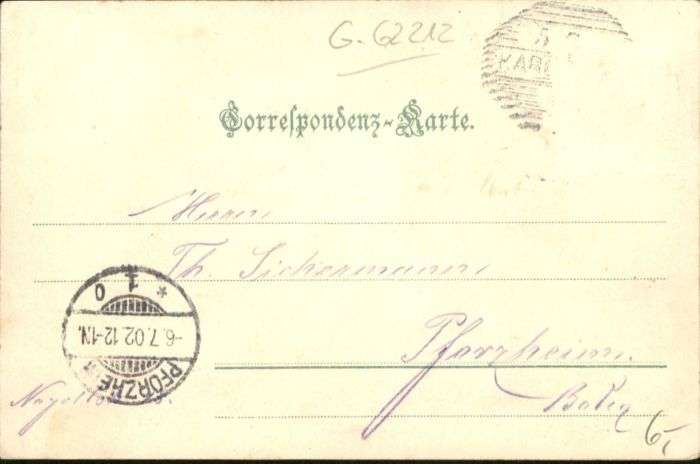 G. 62212
KARL
Correspondenz-Karte.
Herrn
Th. Sickermann
Pforzheim.
Baden
PFORZHE
-6.7.02.12-1N.
* 1 0
6,